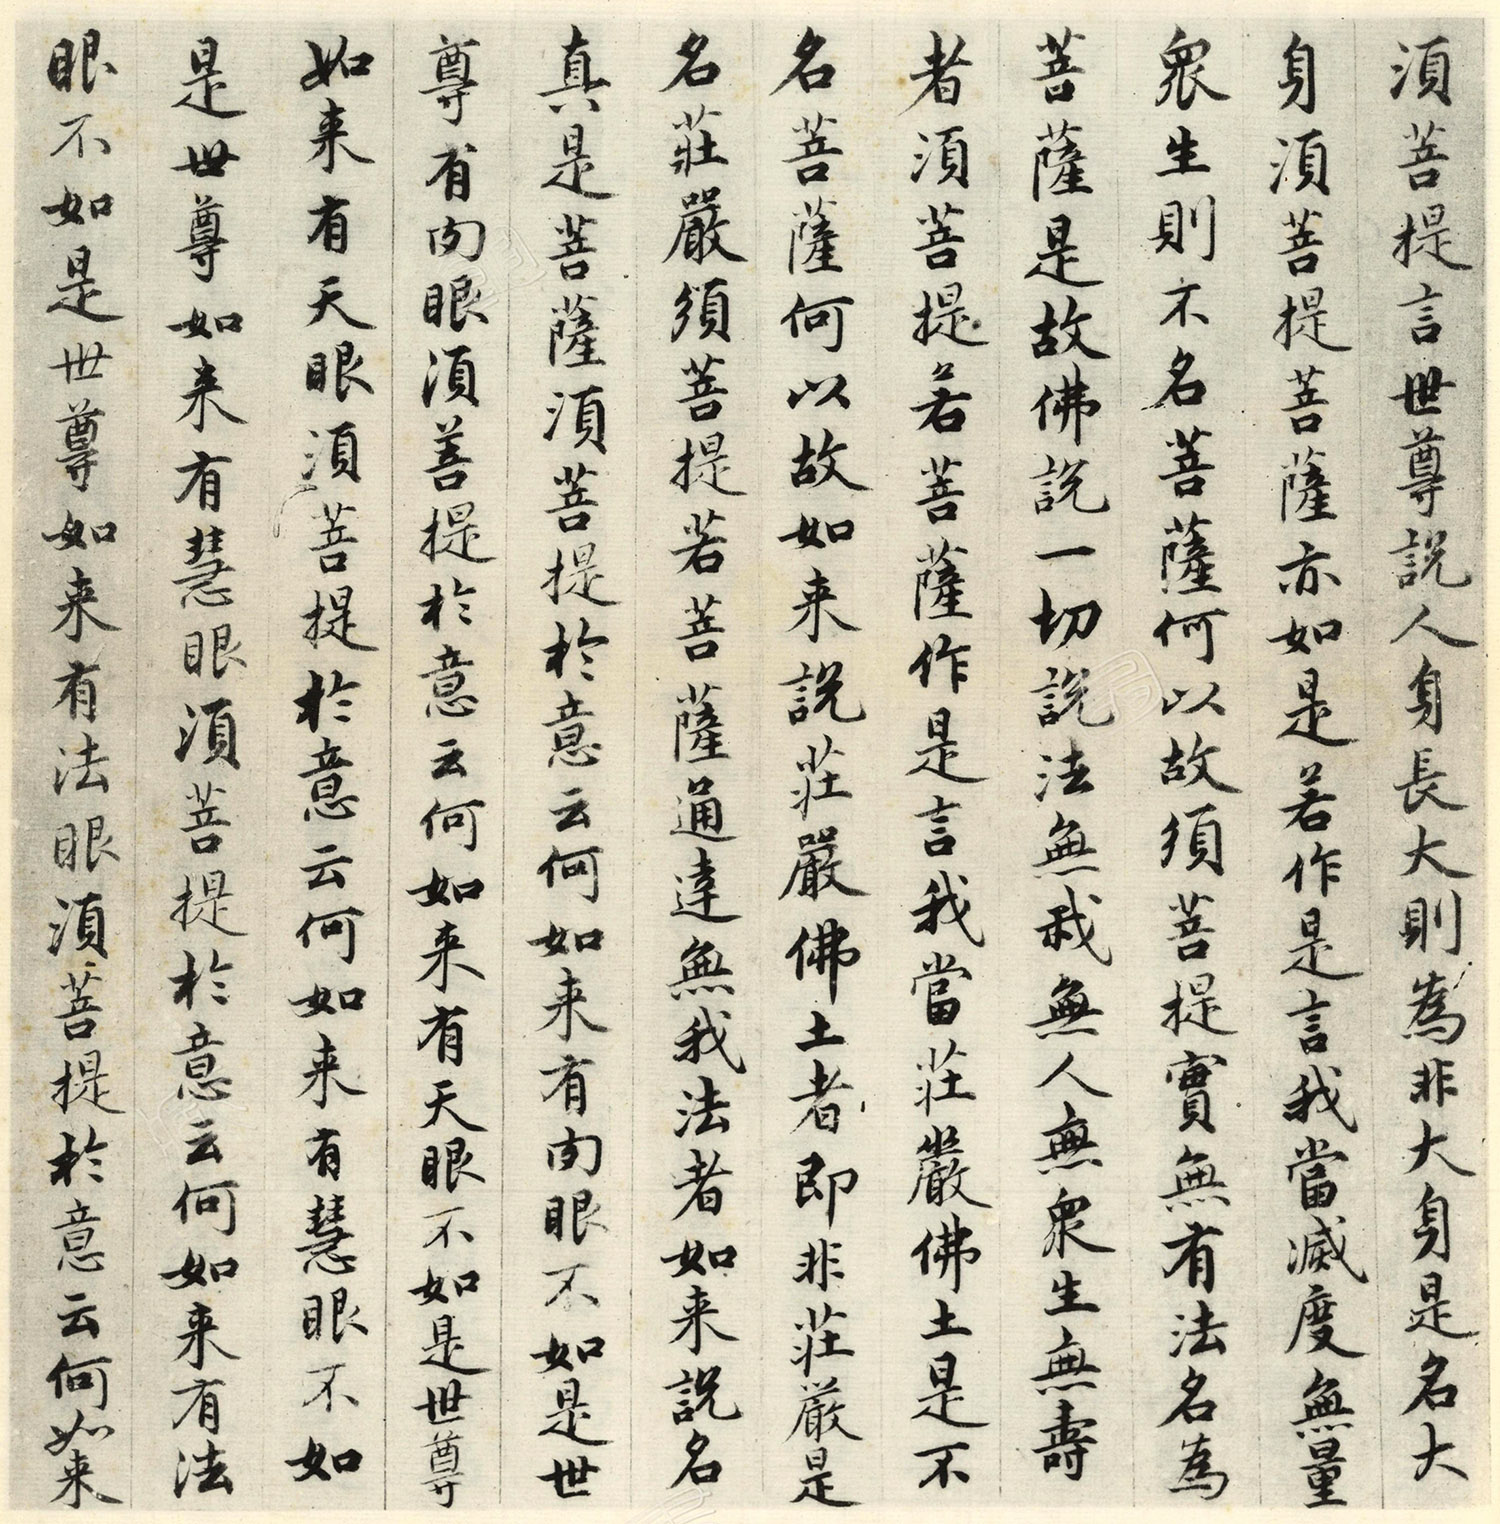 須菩提言世尊說人身長大則為非大身是名大
身須菩提菩薩亦如是若作是言我當滅度無量
眾生則不名菩薩何以故須菩提實無有法名為
菩薩是故佛說一切說法無我無人無眾生無壽
者須菩提若菩薩作是言我當莊嚴佛土是不
名菩薩何以故如来說莊嚴佛土者即非莊嚴是
名莊嚴須菩提若菩薩通達無我法者如来說名
真是菩薩須菩提於意云何如来有肉眼不如是世
尊有肉眼須菩提於意云何如来有天眼不如是世尊
如来有天眼須菩提於意云何如来有慧眼不如
是世尊如来有慧眼須菩提於意云何如来有法
眼不如是世尊如来有法眼須菩提於意云何如来